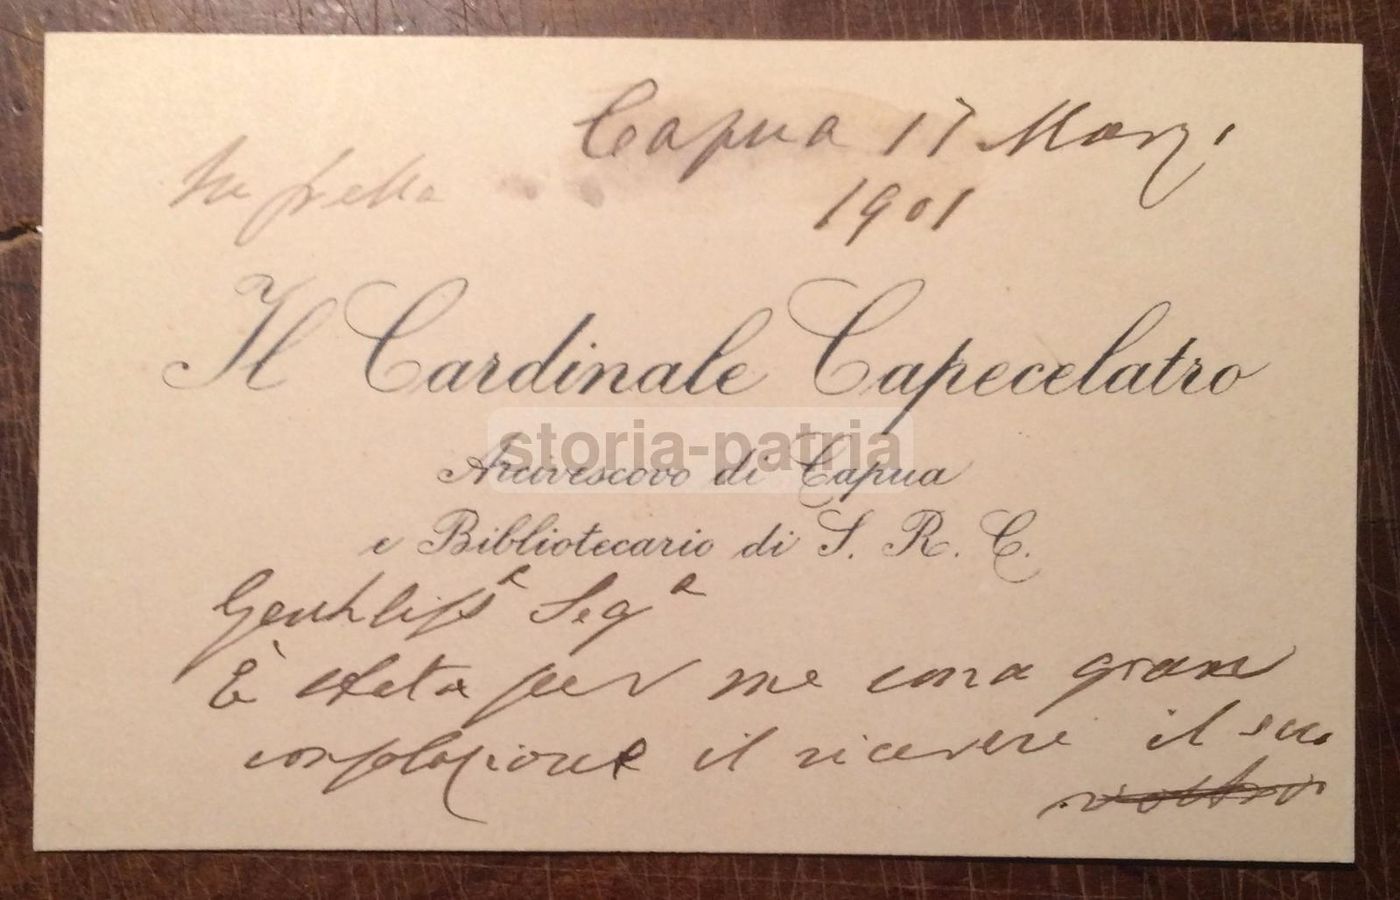 Capua 17 Marzo
In fretta
1901
Il Cardinale Capecelatro
storia-patria
Arcivescovo di Capua
e Bibliotecario di S. R. C.
Gentiliss.a Sig.a
È stata per me una gran
consolazione il ricevere il suo
vostro